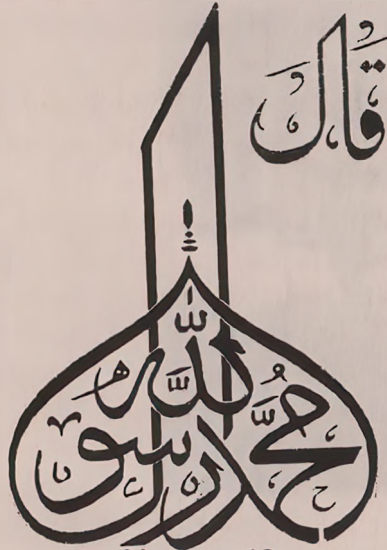 قَالَ
مُحَمَّد رسول اللّٰه